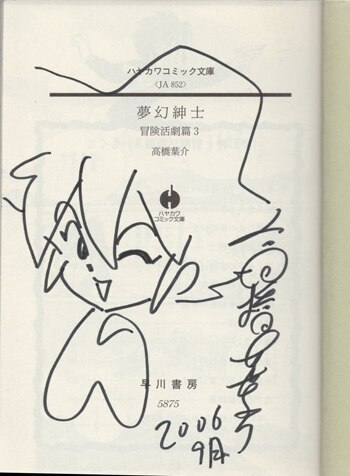 ハヤカワコミック文庫
〈JA 852〉
夢幻紳士
冒険活劇篇3
高橋葉介
ハヤカワ
コミック文庫
高橋葉介
早川書房
5875
2006
9月